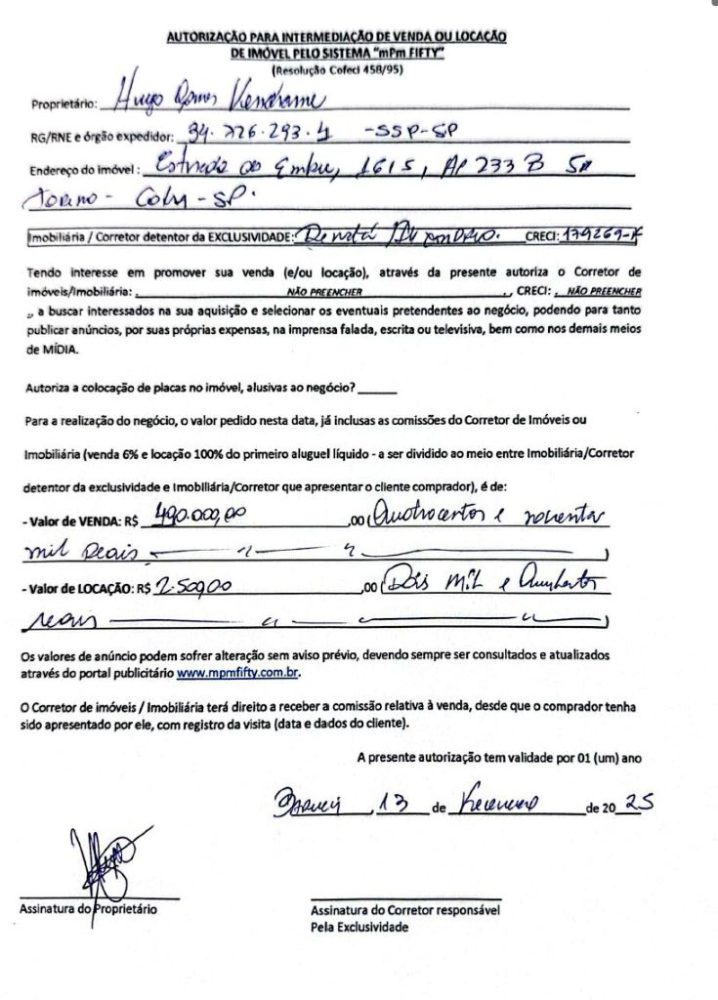 AUTORIZAÇÃO PARA INTERMEDIAÇÃO DE VENDA OU LOCAÇÃO
DE IMÓVEL PELO SISTEMA "mPm FIFTY"
(Resolução Cofeci 458/95)
Proprietário: Hugo Ramos Vendrame
RG/RNE e órgão expedidor: 34.726.293-4 -SSP-SP
Endereço do imóvel : Estrada do Embu, 1615, Ap 233 B
- SP.
Imobiliária / Corretor detentor da EXCLUSIVIDADE: Renata CRECI: 179269-F
Tendo interesse em promover sua venda (e/ou locação), através da presente autoriza o Corretor de
imóveis/Imobiliária: , NÃO PREENCHER , , CRECI: , NÃO PREENCHER
,, a buscar interessados na sua aquisição e selecionar os eventuais pretendentes ao negócio, podendo para tanto
publicar anúncios, por suas próprias expensas, na imprensa falada, escrita ou televisiva, bem como nos demais meios
de MÍDIA.
Autoriza a colocação de placas no imóvel, alusivas ao negócio? ______
Para a realização do negócio, o valor pedido nesta data, já inclusas as comissões do Corretor de Imóveis ou
Imobiliária (venda 6% e locação 100% do primeiro aluguel líquido - a ser dividido ao meio entre Imobiliária/Corretor
detentor da exclusividade e Imobiliária/Corretor que apresentar o cliente comprador), é de:
- Valor de VENDA: R$ 490.000,00 ,00 (Quatrocentos e noventa
mil reais )
- Valor de LOCAÇÃO: R$ 2.500,00 ,00 (Dois mil e Quinhentos
reais )
Os valores de anúncio podem sofrer alteração sem aviso prévio, devendo sempre ser consultados e atualizados
através do portal publicitário www.mpmfifty.com.br.
O Corretor de imóveis / Imobiliária terá direito a receber a comissão relativa à venda, desde que o comprador tenha
sido apresentado por ele, com registro da visita (data e dados do cliente).
A presente autorização tem validade por 01 (um) ano
, 13 de Fevereiro de 2025
Assinatura do Proprietário
Assinatura do Corretor responsável
Pela Exclusividade